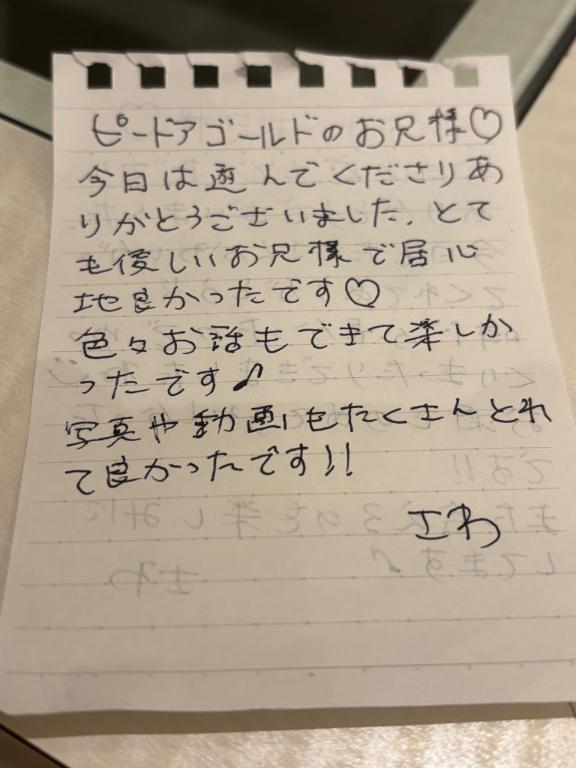 ピードアゴールドのお兄様♡
今日は遊んでくださりあ
りがとうございました、とて
も優しいお兄様で居心
地良かったです♡
色々お話もできて楽しか
ったです♪
写真や動画もたくさんとれ
て良かったです!!
さわ